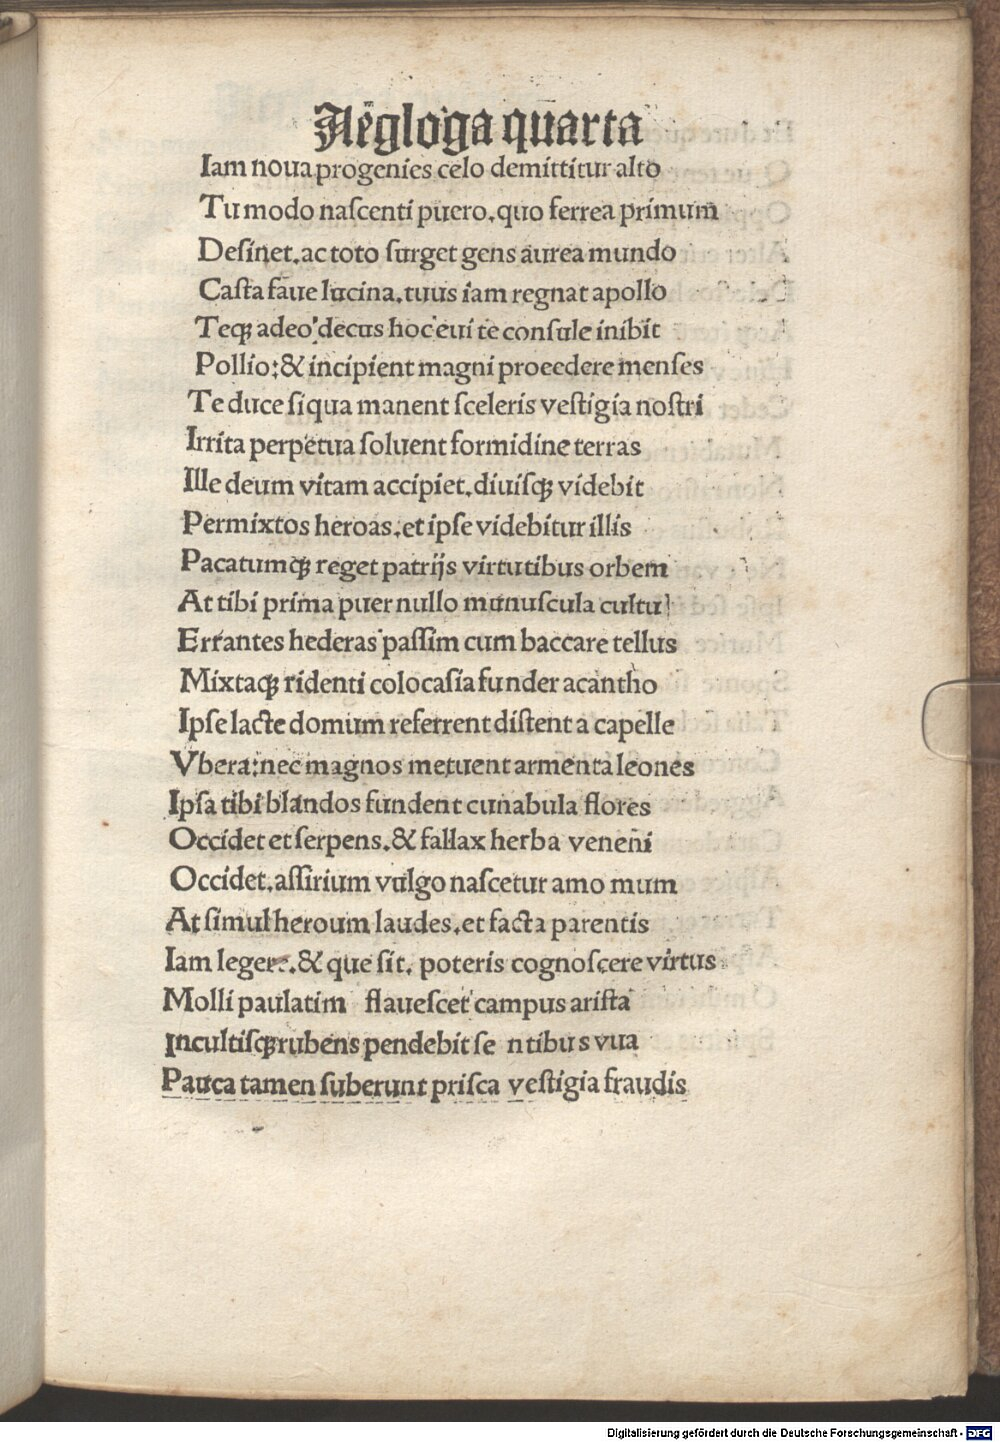 Aēgloga quarta
Iam noua progenies celo demittitur alto
Tu modo naſcenti puero, quo ferrea primum
Deſinet, ac toto ſurget gens aurea mundo
Caſta faue lucina, tuus iam regnat apollo
Teqꝫ adeo decus hoc eui te conſule inibit
Pollio: & incipient magni procedere menſes
Te duce ſiqua manent ſceleris veſtigia noſtri
Irrita perpetua ſoluent formidine terras
Ille deum vitam accipiet, diuiſqꝫ videbit
Permixtos heroas, et ipſe videbitur illis
Pacatumqꝫ reget patrijs virtutibus orbem
At tibi prima puer nullo munuſcula cultu
Errantes hederas paſſim cum baccare tellus
Mixtaqꝫ ridenti colocaſia funder acantho
Ipſe lacte domum referrent diſtent a capelle
Vbera: nec magnos metuent armenta leones
Ipſa tibi blandos fundent cunabula flores
Occidet et ſerpens, & fallax herba veneni
Occidet, aſſirium vulgo naſcetur amo mum
At ſimul heroum laudes, et facta parentis
Iam legere, & que ſit, poteris cognoſcere virtus
Molli paulatim flaueſcet campus ariſta
Incultiſqꝫ rubens pendebit ſe ntibus vua
Pauca tamen ſuberunt priſca veſtigia fraudis
Digitalisierung gefördert durch die Deutsche Forschungsgemeinschaft - DFG